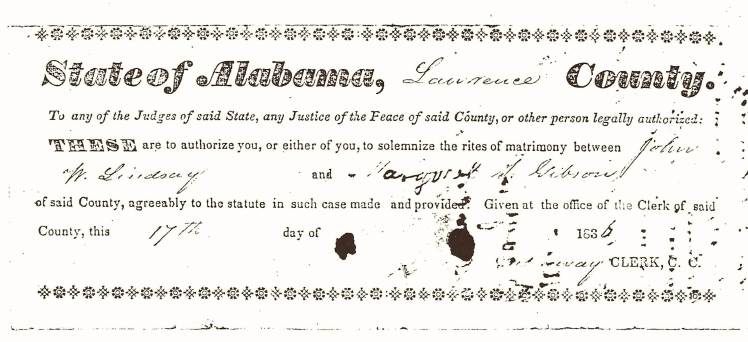 State of Alabama, Lawrence County.
To any of the Judges of said State, any Justice of the Peace of said County, or other person legally authorized:
THESE are to authorize you, or either of you, to solemnize the rites of matrimony between John
W. Lindsay and Margaret Gibson
of said County, agreeably to the statute in such case made and provided. Given at the office of the Clerk of said
County, this 17th day of 1836
CLERK, C. C.